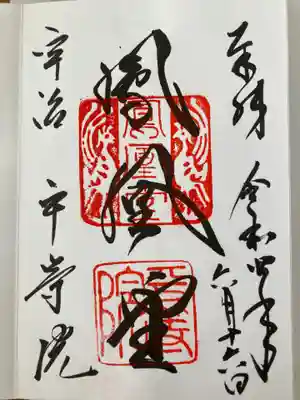 奉拝 令和四年
六月十六日
鳳凰堂
宇治 平等院
鳳凰堂